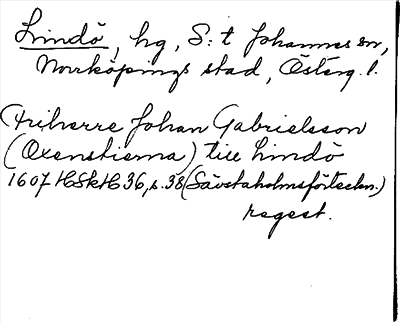 Lindö, hg, S:t Johannes sn,
Norrköpings stad, Österg. l.
Friherre Johan Gabrielsson
(Oxenstierna) till Lindö
1607 HSkH 36, s. 38 (Sävstaholmsförteckn.)
regest.